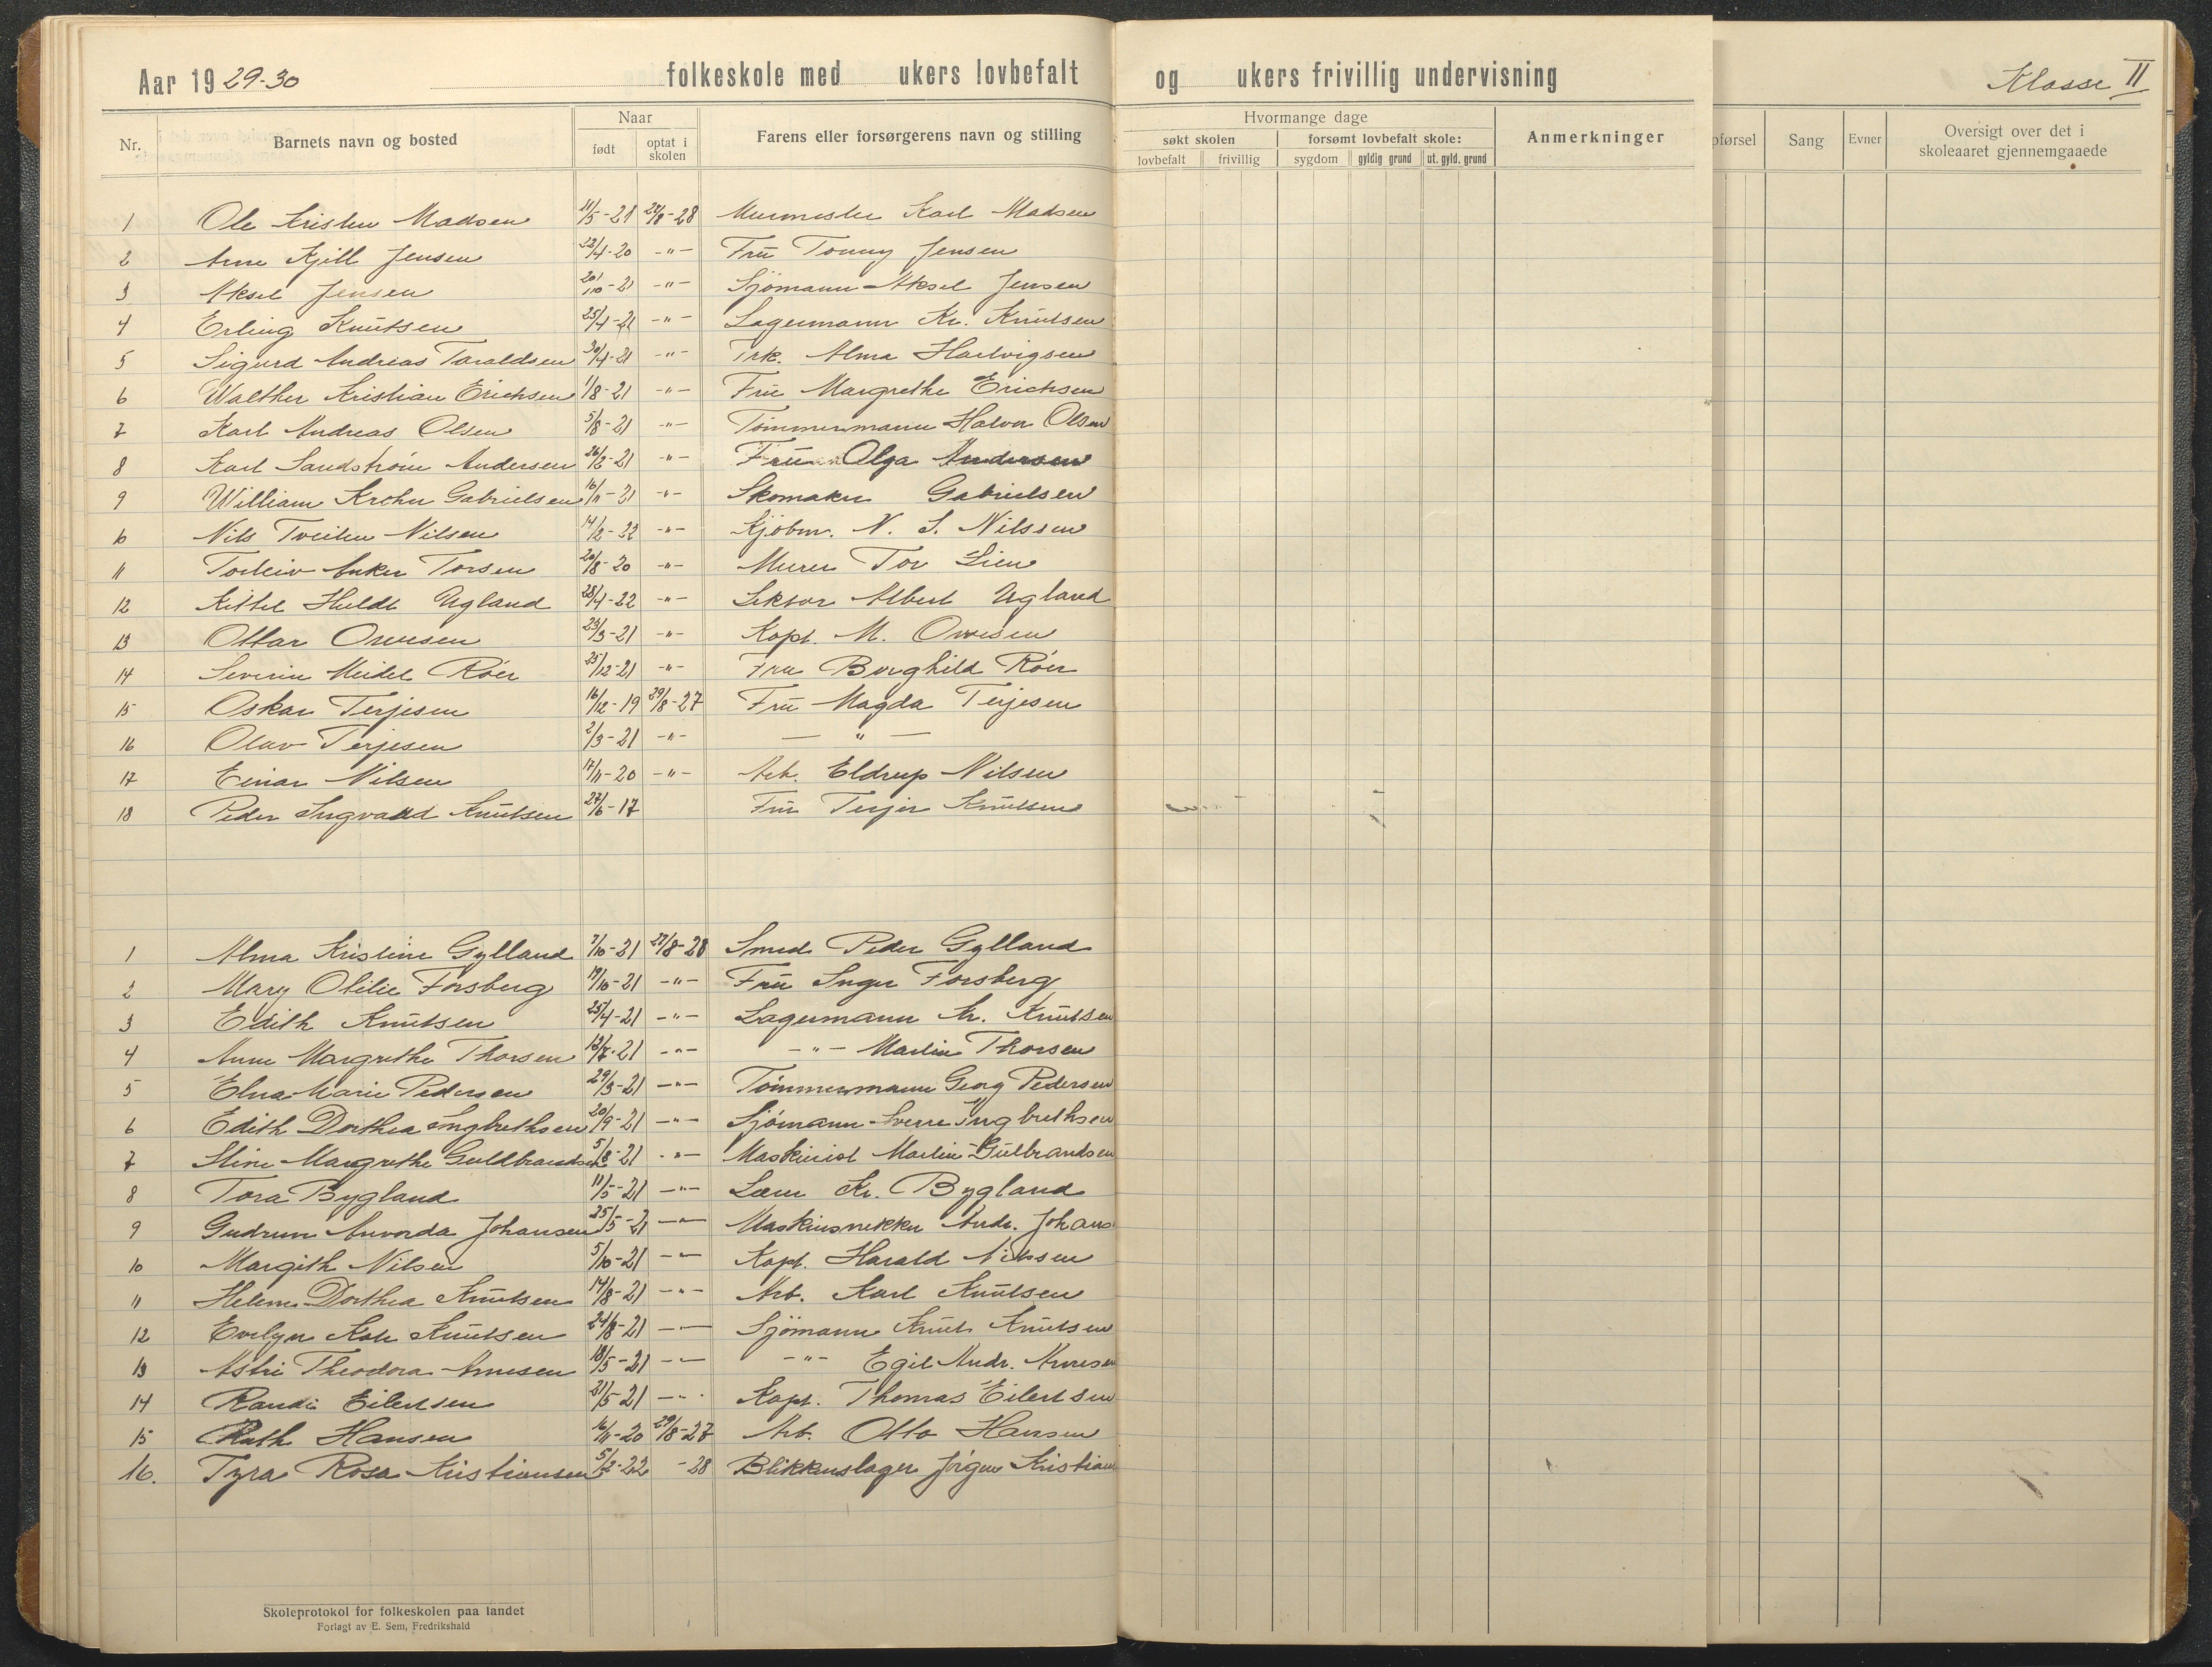 Aar 1929-30 folkeskole med ukers lovbefalt og ukers frivillig undervisning Klasse II
Nr. Barnets navn og bosted Naar Farens eller forsørgerens navn og stilling Hvormange dage Anmerkninger oførsel Sang Evner Oversigt over det i skoleaaret gjennemgaaede
født optat i skolen søkt skolen forsømt lovbefalt skole:
lovbefalt frivillig sygdom gyldig grund ut. gyld. grund
1 Ole Kristen Madsen 11/5-21 28-28 Murmester Karl Madsen
2 Arne Kjell Jensen 22/4-20 -"- Fru Tonny Jensen
3 Aksel Jensen 20/10-21 -"- Sjömann Aksel Jensen
4 Erling Knutsen 25/4-21 -"- Lagermann Kr. Knutsen
5 Sigurd Andreas Taraldsen 30/4-21 -"- Frk. Alma Hartvigsen
6 Walther Kristian Erichsen 1/8-21 -"- Fru Margrethe Erichsen
7 Karl Andreas Olsen 5/8-21 -"- Tømmermann Halvor Olsen
8 Karl Sandstrøm Andersen 26/2-21 -"- Fru Olga Andersen
9 William Krohn Gabrielsen 16/11-21 -"- Skomaker Gabrielsen
10 Nils Tveiten Nilsen 14/2-22 -"- Kjöbm. N. S. Nilssen
11 Torleiv Anker Torsen 20/8-20 -"- Murer Tor Lien
12 Kittel Huldt Ugland 28/4-22 -"- Lektor Albert Ugland
13 Ottar Ovesen 23/3-21 -"- Kapt. M. Ovesen
14 Severin Meidel Röer 25/12-21 -"- Fru Borghild Röer
15 Oskar Terjesen 16/12-19 29/8-27 Fru Magda Terjesen
16 Olav Terjesen 2/3-21 -"- — " —
17 Einar Nilsen 17/11-20 -"- Arb. Eldrup Nilsen
18 Peder Ingvald Knutsen 27/6-17 Fru Terjer Knutsen
1 Alma Kristine Gylland 7/10-21 27/8-28 Smed Peder Gylland
2 Mary Otilie Forsberg 19/10-21 -"- Fru Inger Forsberg
3 Edith Knutsen 25/4-21 -"- Lagermann Kr. Knutsen
4 Anne Margrethe Thorsen 13/7-21 -"- -"- Martin Thorsen
5 Elna Marie Pedersen 29/3-21 -"- Tømmermann Georg Pedersen
6 Edith Dorthea Ingbrethsen 20/9-21 -"- Sjömann Sverre Ingbrethsen
7 Stine Margrethe Guldbrandsen 5/8-21 -"- Maskinist Martin Gulbrandsen
8 Tora Bygland 11/5-21 -"- Lærer Kr. Bygland
9 Gudrun Anvorda Johansen 25/5-21 -"- Maskinsnekker Andr. Johans
10 Margith Nilsen 5/10-21 -"- Kapt. Harald Nilsen
11 Helene Dorthea Knutsen 14/8-21 -"- Arb. Karl Knutsen
12 Evelyn Kate Knutsen 24/8-21 -"- Sjömann Knut Knutsen
13 Astri Theodora Arnesen 18/5-21 -"- -"- Egil Andr. Arnesen
14 Randi Eilertsen 21/5 21 -"- Kapt. Thomas Eilertsen
15 Ruth Hansen 16/11-20 29/8-27 Arb. Otto Hansen
16. Tyra Rosa Kristiansen 5/2-22 -28 Blikkenslager Jörgen Kristian
Skoleprotokol for folkeskolen paa landet
Forlagt av E. Sem, Fredrikshald